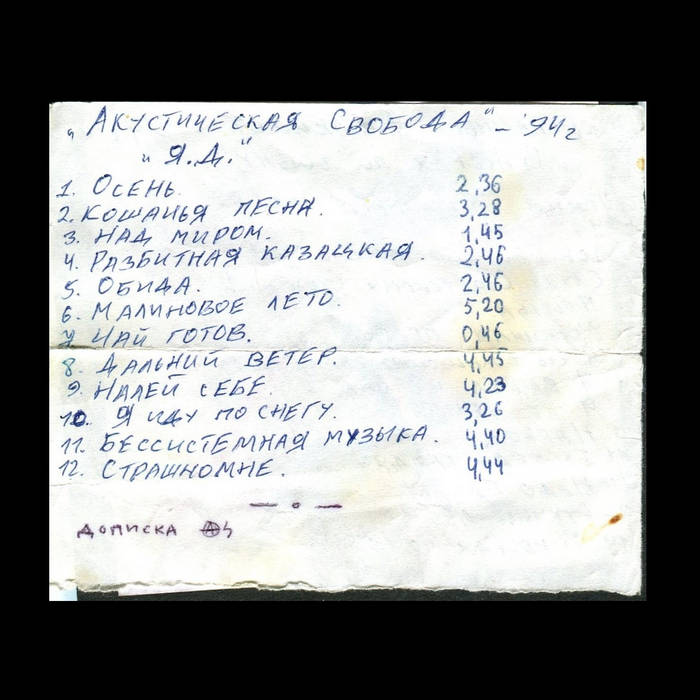 „Акустическая Свобода" – '94г
„Я.Д."
1. Осень. 2,36
2. Кошачья песня. 3,28
3. Над миром. 1,45
4. Разбитная казацкая. 2,46
5. Обида. 2,46
6. Малиновое лето. 5,20
7 Чай готов. 0,46
8. Дальний ветер. 4,45
9. Налей себе. 4,23
10. Я иду по снегу. 3,26
11. Бессистемная музыка. 4,40
12. Страшномне. 4,44
— о —
дописка